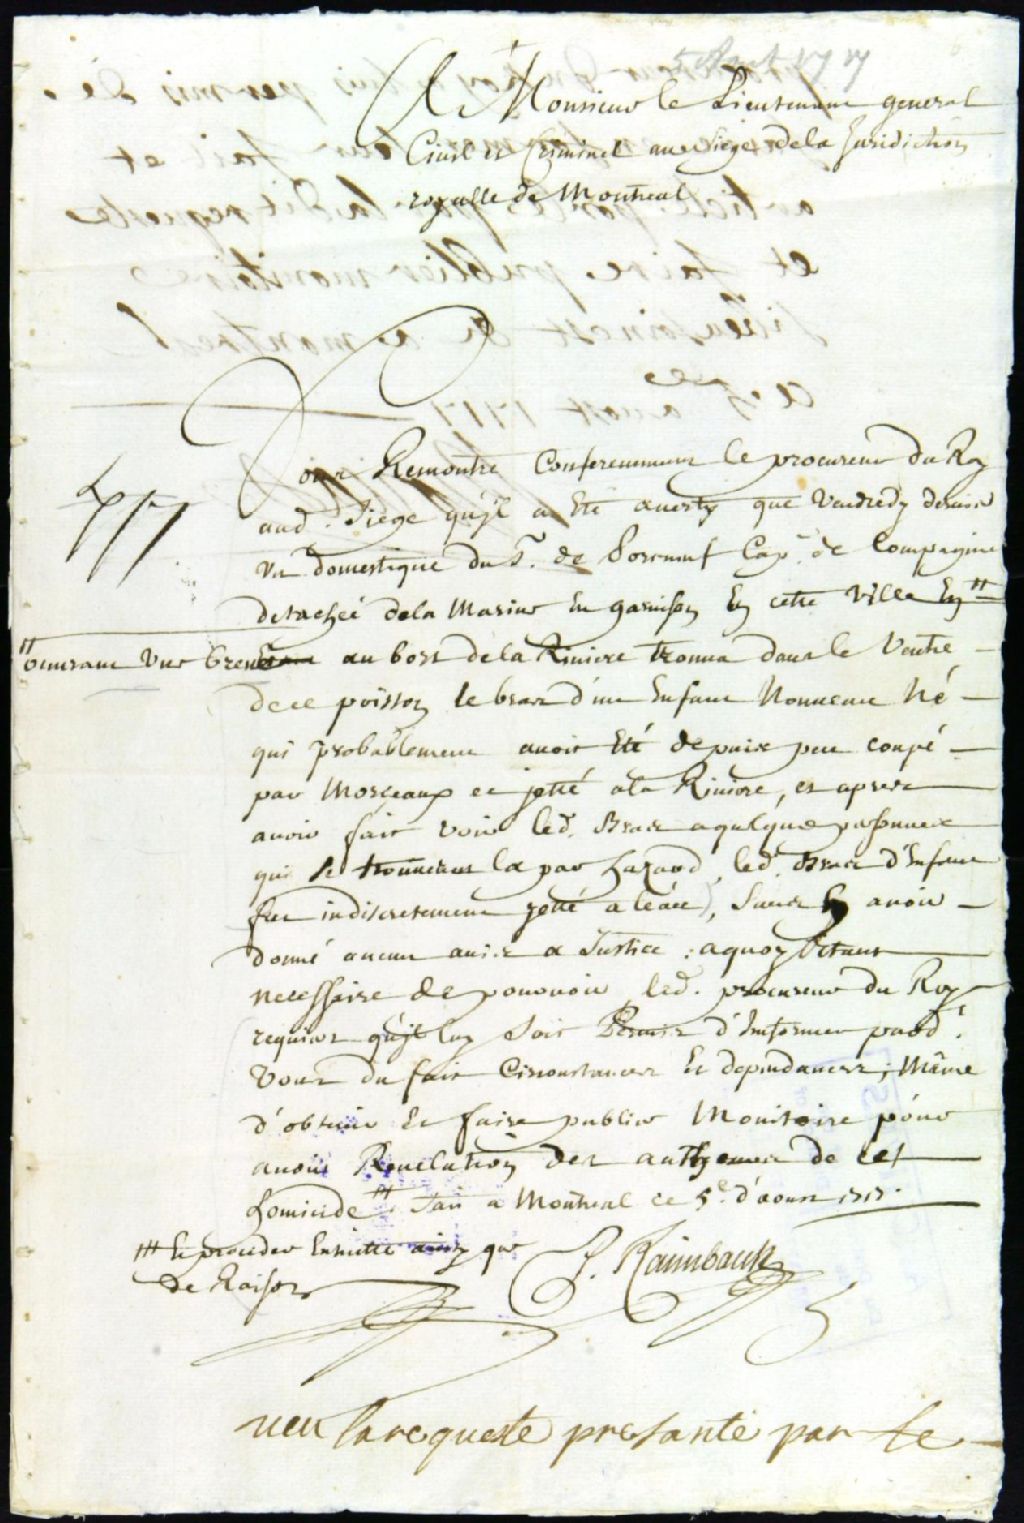 5 Aout 1717
A Monsieur le Lieutenant general
Civil et Criminel au Siege de la Juridiction
royalle de Montreal
Vous Remontre le procureur du Roy
aud. Siege qu'jl a Eté averty que Vendredy dernier
Un domestique du Sr. de Cap.ne de Compagnie
detachée dela Marine En garnison En cette Ville En "
" ouvrant Une au bord de la Riviere trouva dans le Ventre
de ce poisson le bras d'un Enfant Nouveau Né
qui probablement avoit Eté depuis peu coupé
par Morceaux et jetté ala Riviere, et apres
avoir fait voir led. Bras aquelques personnes
qui se trouverent la par hazard, led. Bras d'Enfant
fut indiscretement jetté a l'eau, sans En avoir
donné aucun avis a Justice; aquoy Estant
necessaire de pourvoir, led. procureur du Roy
requiert qu'jl luy soit Permis d'Informer pard.
Vous du fait Circonstances Et dependances, Même
d'obtenir Et faire publier Monitoire pour
avoir Revelation des autheurs de cet
homicide "' fait a Montreal ce 5e. d'aoust 1717.
"' Et proceder Ensuitte ainsy que
de Raison
P. Raimbault
veu la requeste presanté par le